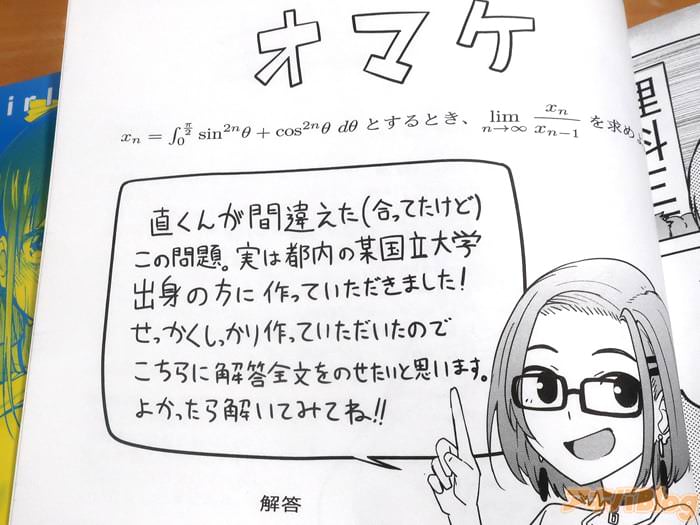 irl
オマケ
理科三
$x_n = \int_0^{\frac{\pi}{2}} \sin^{2n}\theta + \cos^{2n}\theta \ d\theta$ とするとき、$\lim_{n \to \infty} \frac{x_n}{x_{n-1}}$ を求め
直くんが間違えた(合ってたけど)
この問題。実は都内の某国立大学
出身の方に作っていただきました!
せっかくしっかり作っていただいたので
こちらに解答全文をのせたいと思います。
よかったら解いてみてね!!
解答
アキバBlog